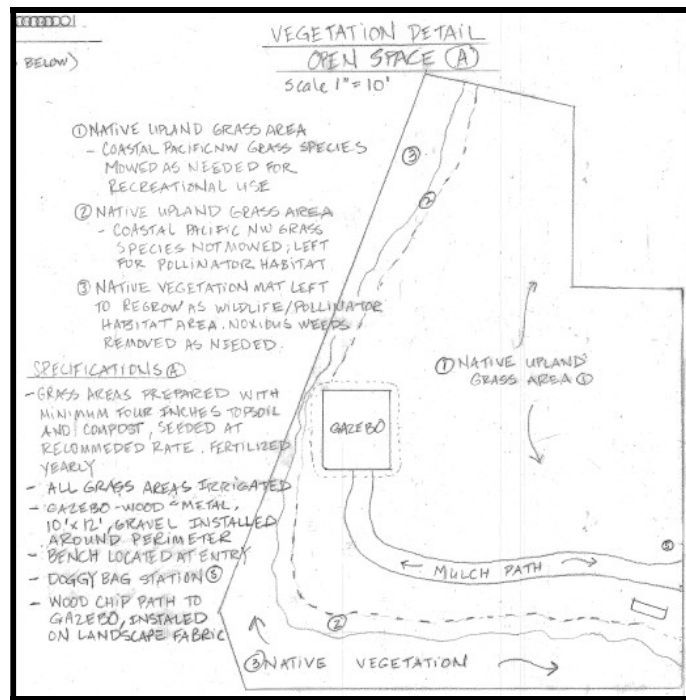 BELOW)
VEGETATION DETAIL
OPEN SPACE Ⓐ
Scale 1" = 10'
① NATIVE UPLAND GRASS AREA
- COASTAL PACIFIC NW GRASS SPECIES
MOWED AS NEEDED FOR
RECREATIONAL USE
② NATIVE UPLAND GRASS AREA
- COASTAL PACIFIC NW GRASS
SPECIES NOT MOWED; LEFT
FOR POLLINATOR HABITAT
③ NATIVE VEGETATION MAT LEFT
TO REGROW AS WILDLIFE/POLLINATOR
HABITAT AREA. NOXIOUS WEEDS
REMOVED AS NEEDED.
SPECIFICATIONS Ⓐ
- GRASS AREAS PREPARED WITH
MINIMUM FOUR INCHES TOPSOIL
AND COMPOST, SEEDED AT
RECOMMEDED RATE. FERTILIZED
YEARLY
- ALL GRASS AREAS IRRIGATED
- GAZEBO - WOOD METAL,
10'x12', GRAVEL INSTALLED
AROUND PERIMETER
- BENCH LOCATED AT ENTRY
- DOGGY BAG STATION Ⓢ
- WOOD CHIP PATH TO
GAZEBO, INSTALED
ON LANDSCAPE FABRIC
③
②
① NATIVE UPLAND
GRASS AREA ①
GAZEBO
Ⓢ
← MULCH PATH →
②
③ NATIVE VEGETATION